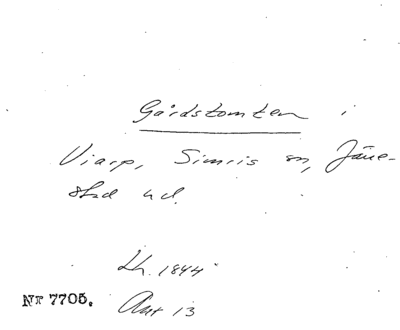 Gårdstomten i
Viarp, Simris sn, Järre-
stad hd.
Lh. 1844
Nr 7705. Ant 13